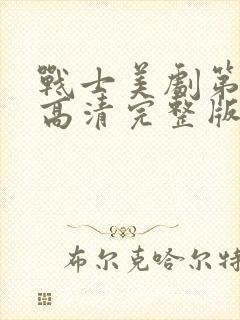 戰士美劇第
高清完整版
布尔克哈尔特